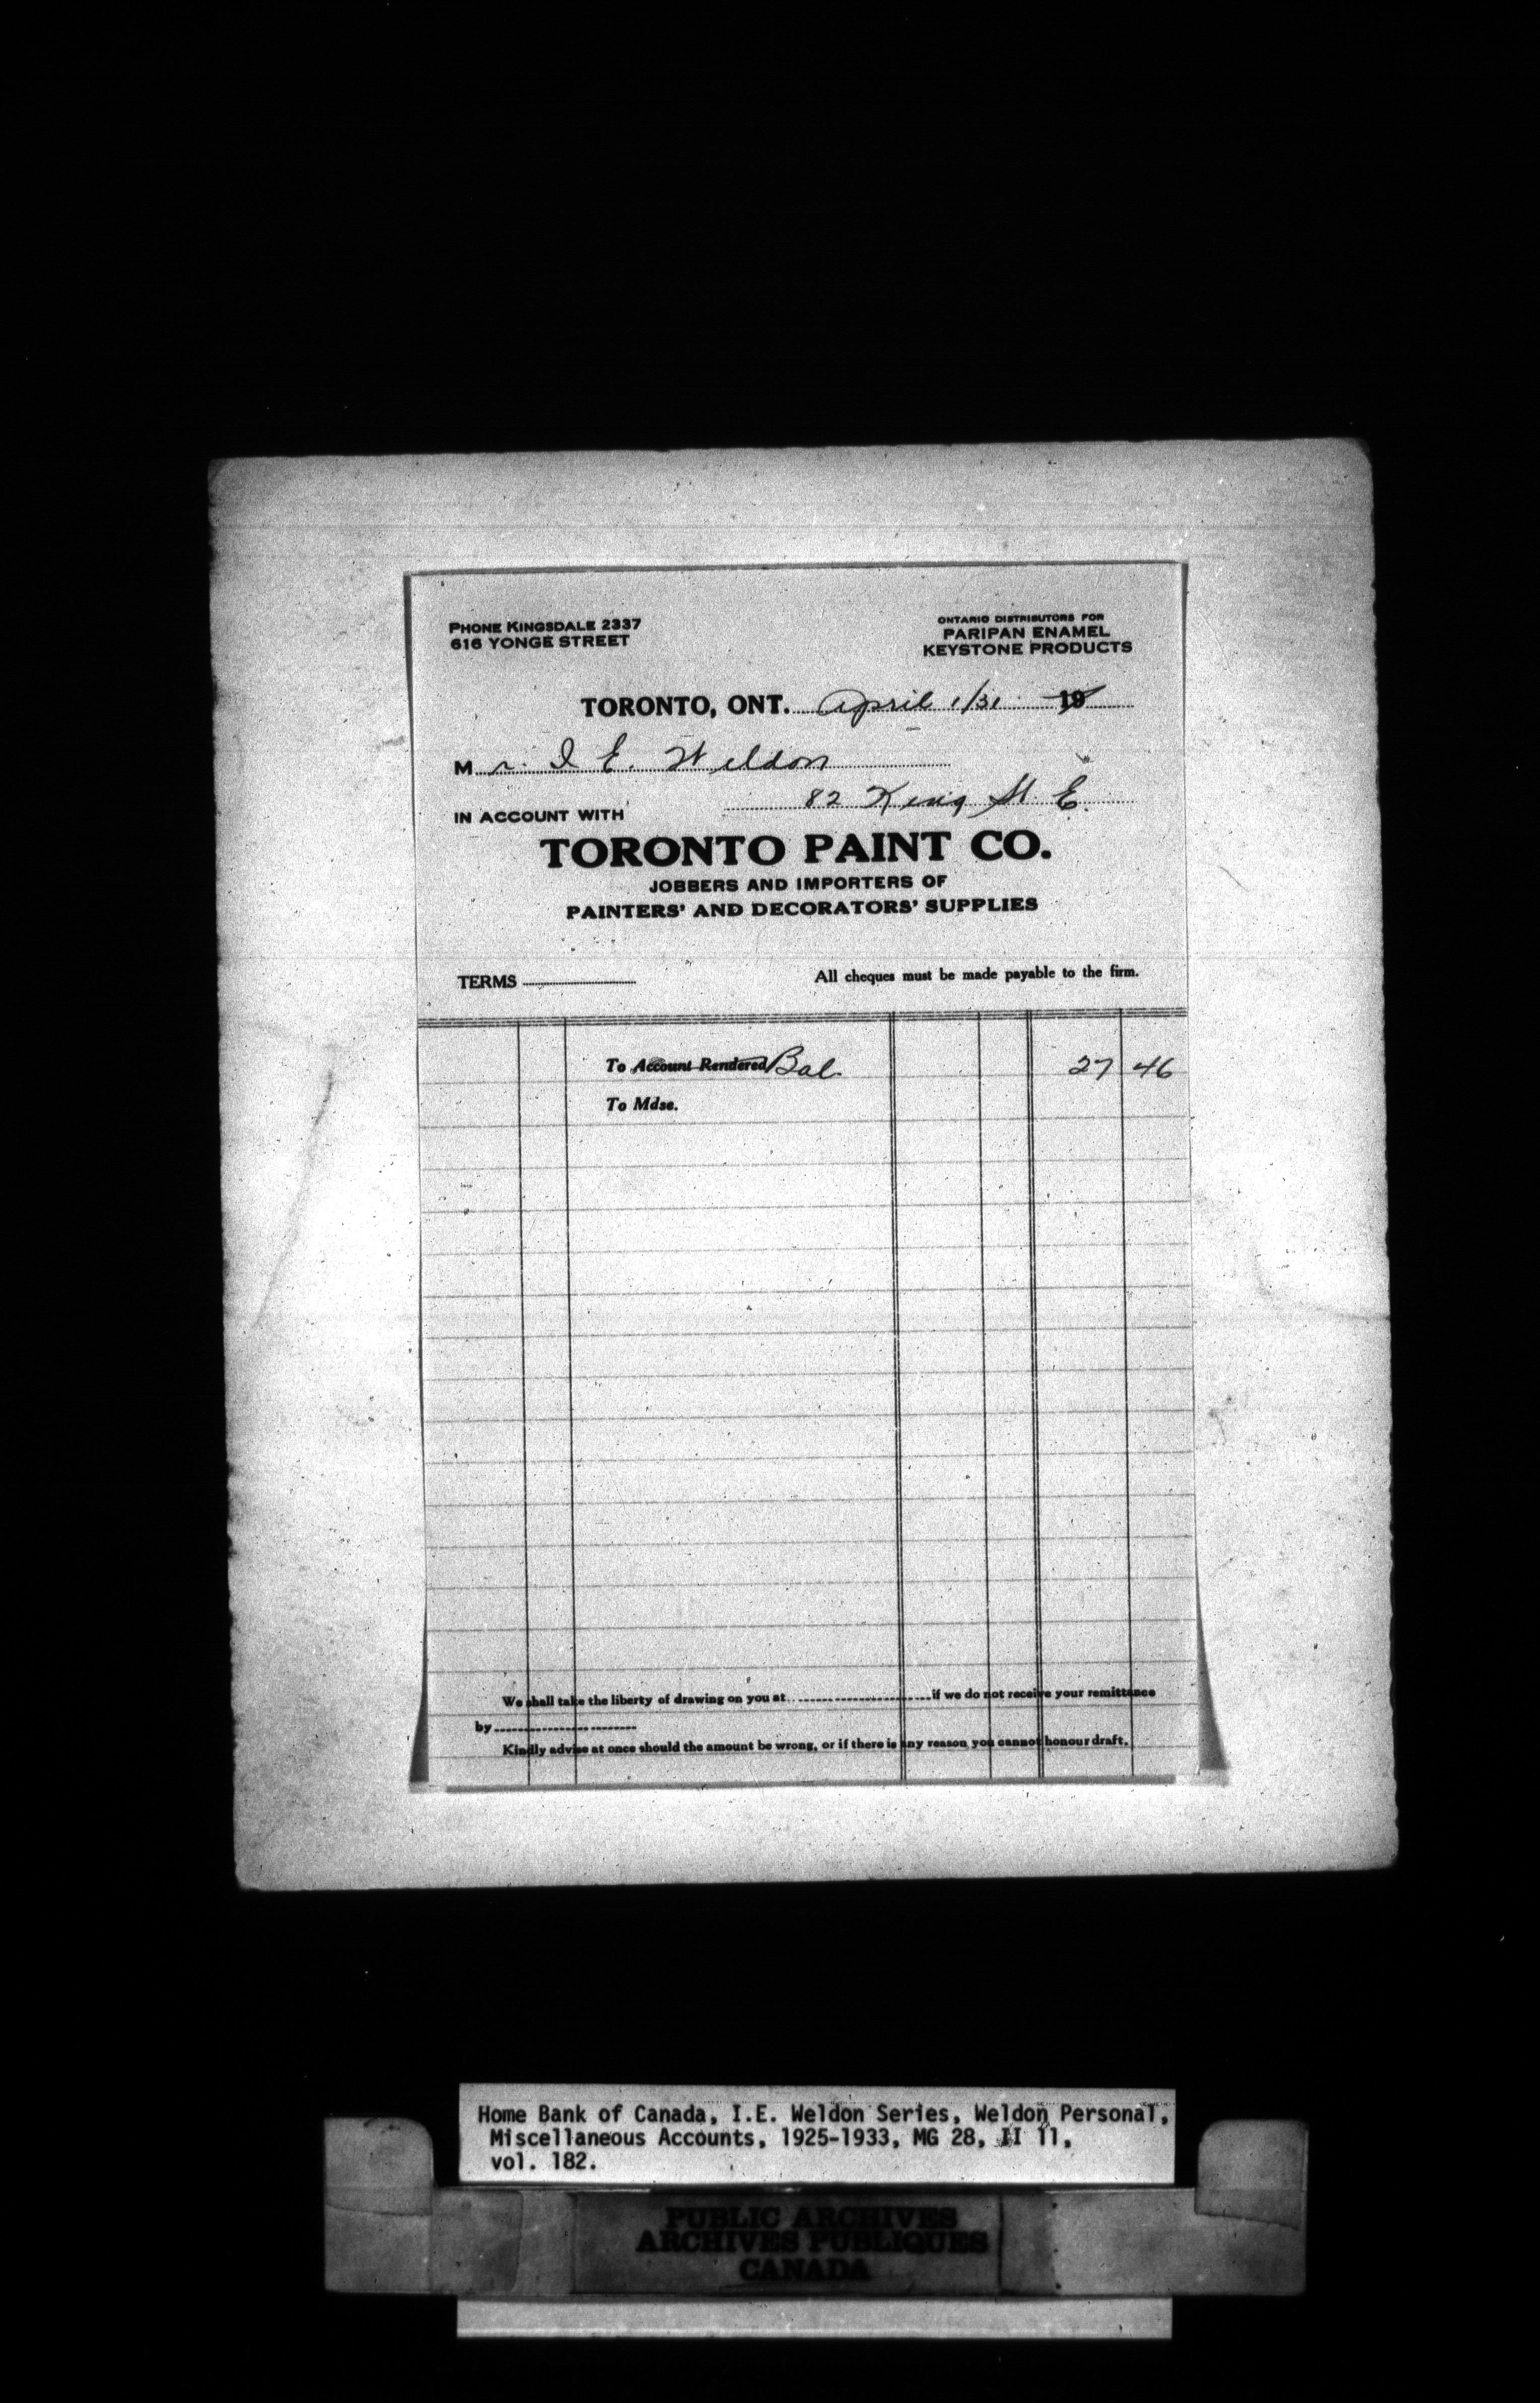 PHONE KINGSDALE 2337
616 YONGE STREET
ONTARIO DISTRIBUTORS FOR
PARIPAN ENAMEL
KEYSTONE PRODUCTS
TORONTO, ONT. April 1/31 19
Mr. I E. Weldon
82 King St. E.
IN ACCOUNT WITH
TORONTO PAINT CO.
JOBBERS AND IMPORTERS OF
PAINTERS' AND DECORATORS' SUPPLIES
TERMS
All cheques must be made payable to the firm.
To Account Rendered Bal. 27 46
To Mdse.
We shall take the liberty of drawing on you at if we do not receive your remittance
by
Kindly advise at once should the amount be wrong, or if there is any reason you cannot honour draft.
Home Bank of Canada, I.E. Weldon Series, Weldon Personal,
Miscellaneous Accounts, 1925-1933, MG 28, II 11,
vol. 182.
PUBLIC ARCHIVES
ARCHIVES PUBLIQUES
CANADA